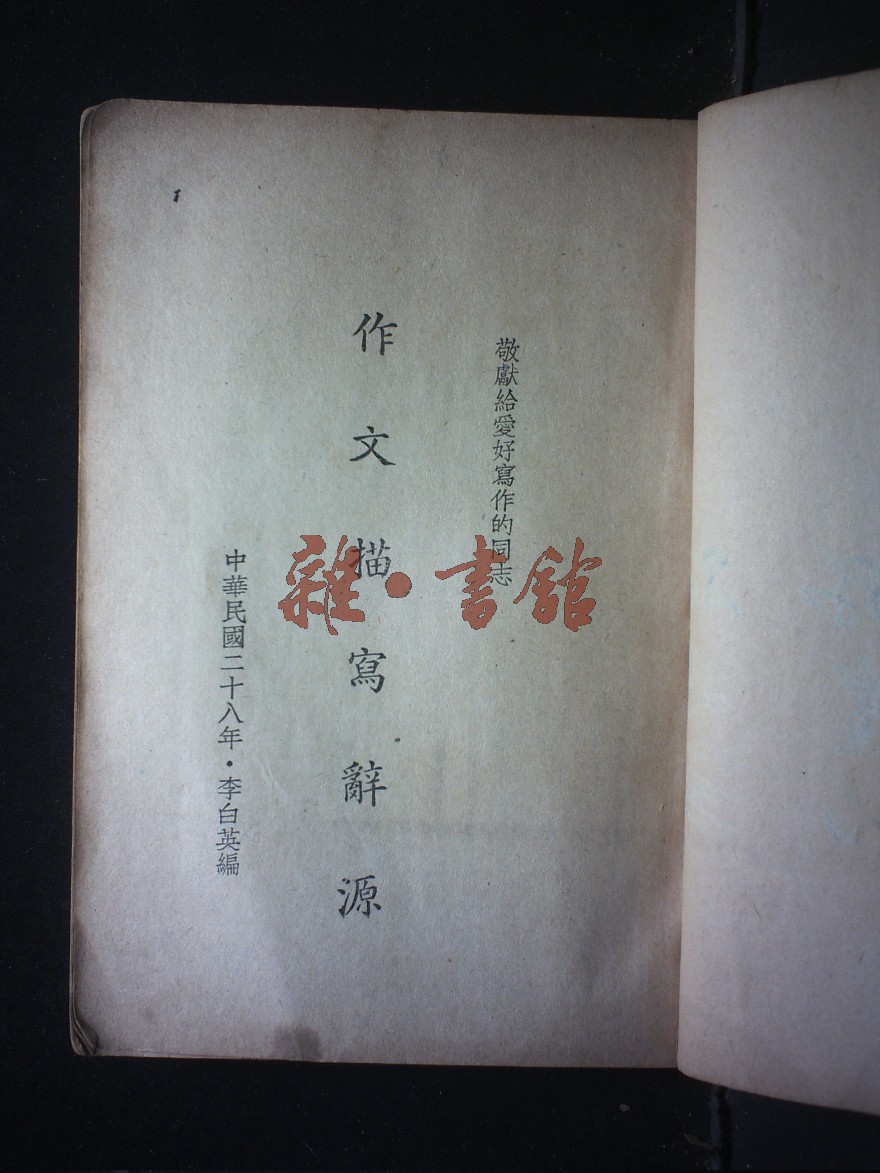 敬獻給愛好寫作的同志
作文描寫辭源
中華民國二十八年・李白英編
雜・書館